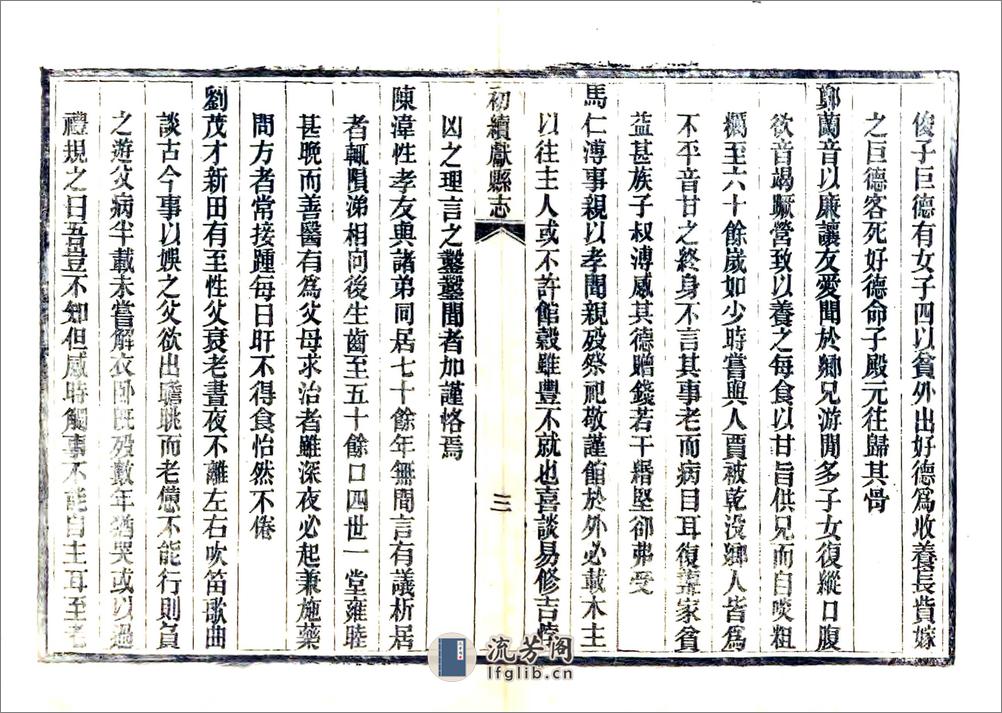 俊子巨德有女子四以貧外出好德為收養長貲嫁
之巨德客死好德命子殿元往歸其骨
鄭蘭音以廉讓友愛聞於鄉兄游閒多子女復縱口腹
欲音竭蹶營致以養之每食以甘旨供兄而自啖粗
糲至六十餘歲如少時嘗與人賈被乾没鄉人皆為
不平音甘之終身不言其事老而病目耳復聾家貧
益甚族子叔溥感其德贈錢若干緡堅卻弗受
馬仁溥事親以孝聞親殁祭祀敬謹館於外必載木主
以往主人或不許館榖雖豐不就也喜談易修吉悖
初續獻縣志
三
凶之理言之鑿鑿聞者加謹恪焉
陳漳性孝友與諸弟同居七十餘年無間言有議析居
者輒隕涕相向後生齒至五十餘口四世一堂雍睦
甚晚而善醫有為父母求治者雖深夜必起兼施藥
問方者常接踵每日旰不得食怡然不倦
劉茂才新田有至性父衰老晝夜不離左右吹笛歌曲
談古今事以娛之父欲出瞻眺而老憊不能行則負
之遊父病半載未嘗解衣卧既殁數年猶哭或以過
禮規之曰吾豈不知但感時觸事不能自主耳至老
流芳阁
lfglib.cn